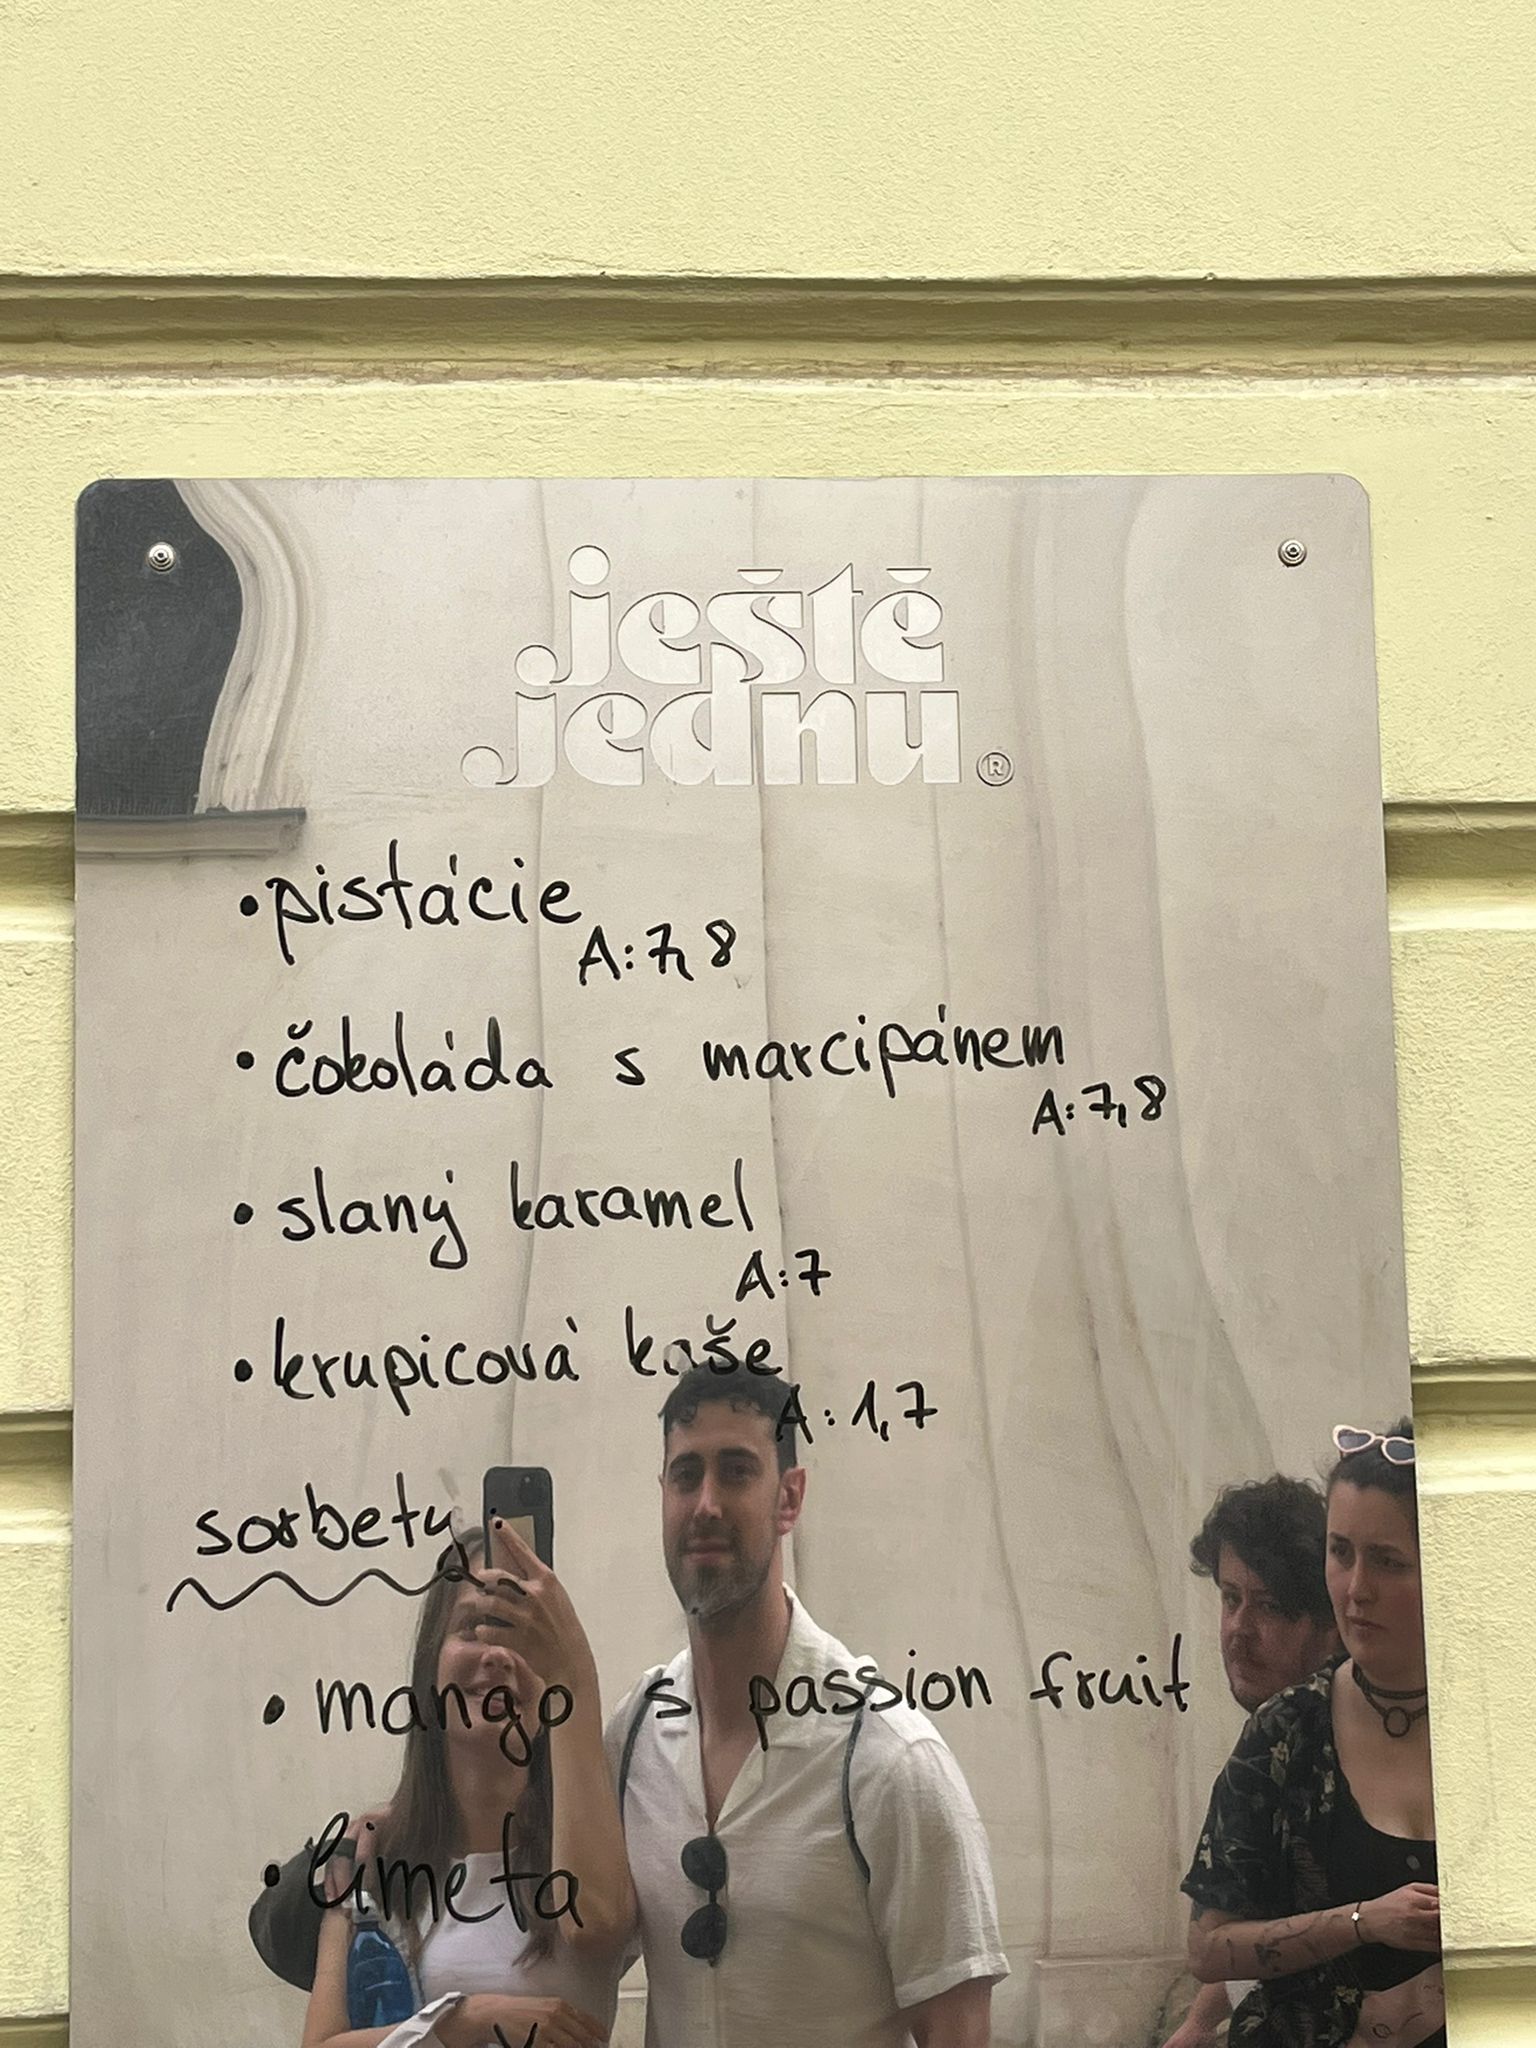 ještě
jednu®
• pistácie
A: 7, 8
• čokoláda s marcipánem
A: 7, 8
• slaný karamel
A: 7
• krupicová kaše
A: 1, 7
sorbety
• mango s passion fruit
• limeta